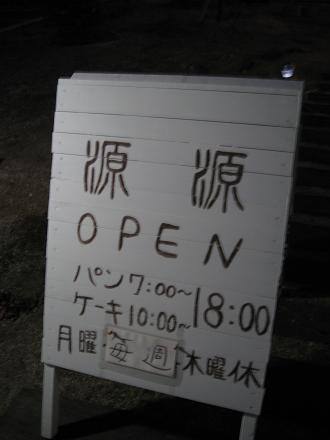 源 源
OPEN
パン 7:00~
ケーキ 10:00~ 18:00
月曜 毎週 木曜休